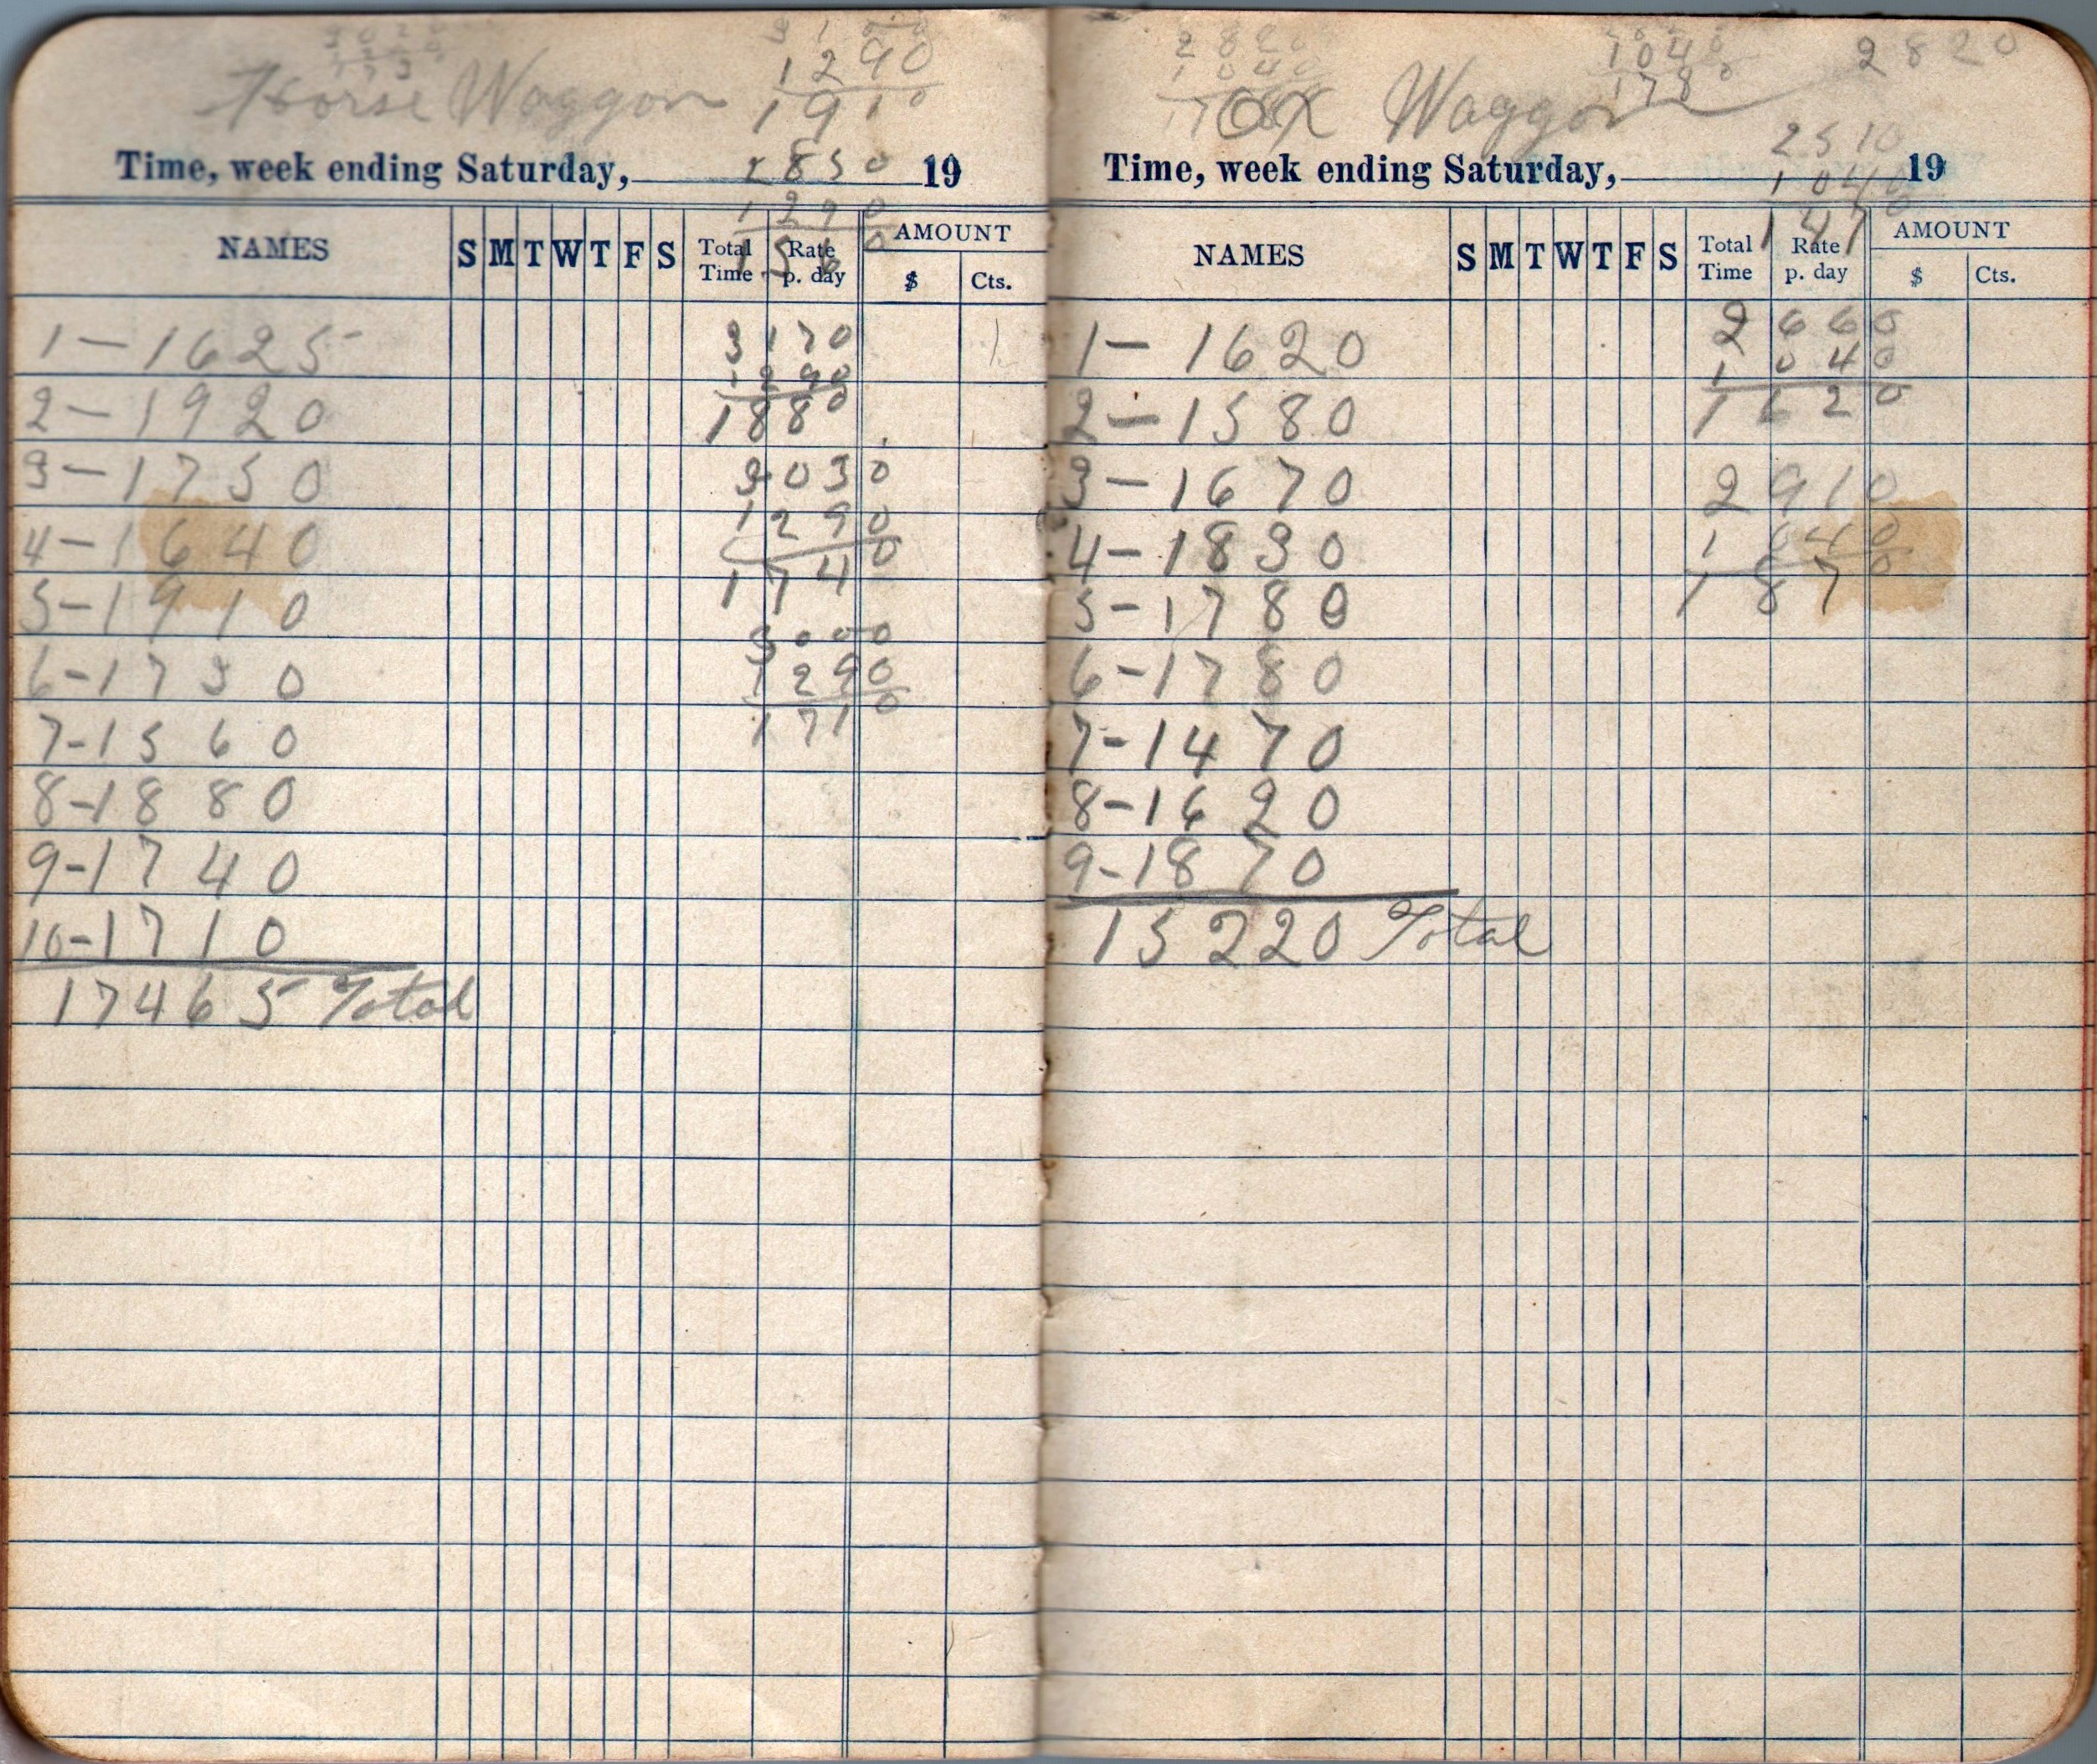 1290
1910
Horse Waggon
2850
Time, week ending Saturday, 19
1290
1560
NAMES S M T W T F S Total Time Rate p. day AMOUNT $ Cts.
1-1625
3170
1290
2-1920
1880
3-1750
3030
1290
4-1640
1740
5-1910
3000
6-1730
1290
7-1560
1710
8-1880
9-1740
10-1710
17465 Total
2820
1040
2820
1040
1780
Ox Waggon
2510
Time, week ending Saturday, 19
1040
1470
NAMES S M T W T F S Total Time Rate p. day AMOUNT $ Cts.
1-1620
2660
1040
2-1580
1620
3-1670
2910
4-1830
1040
5-1780
1870
6-1780
7-1470
8-1620
9-1870
15220 Total